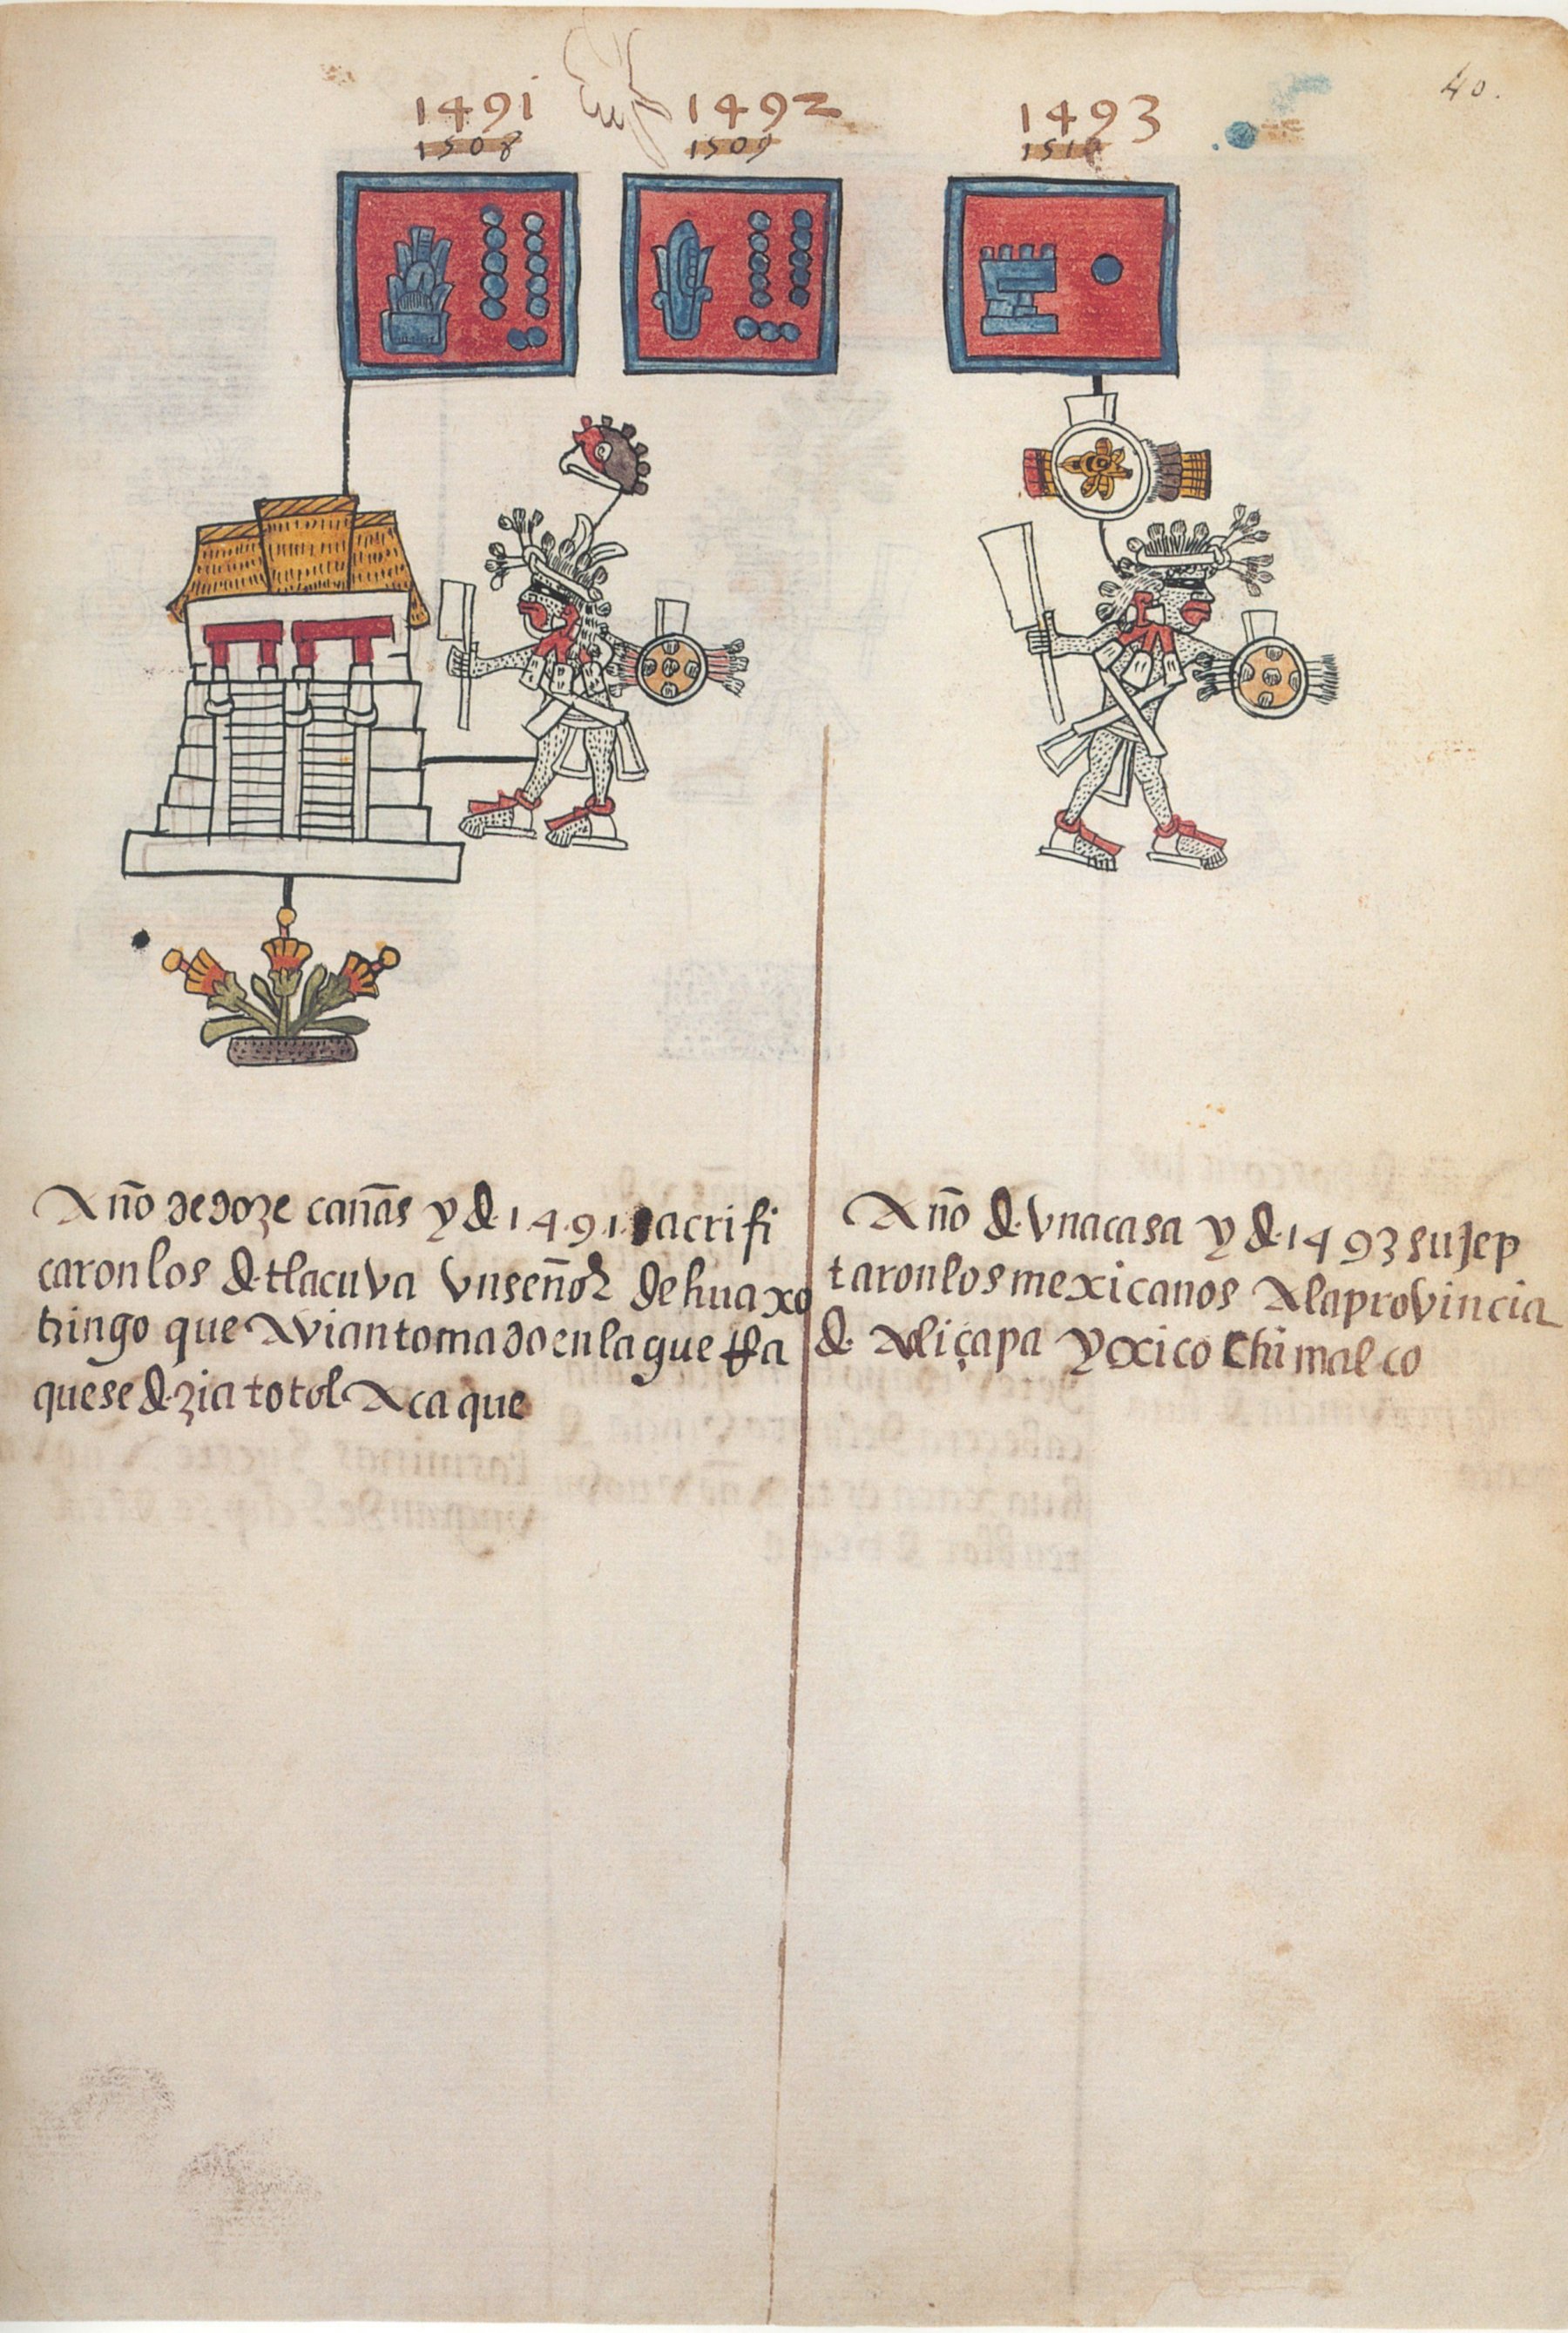 40.
1491 1492 1493
1508 1509 1510
Año de doze cañas y d. 1491 sacrifi
caron los d. tlacuva vn señor de huaxo
tzingo que avian tomado en la guerra
que se dezia totol Aca que
Año d. vna casa y d. 1493 sujep
taron los mexicanos Ala provincia
d. Aliçapa y xico chimalco